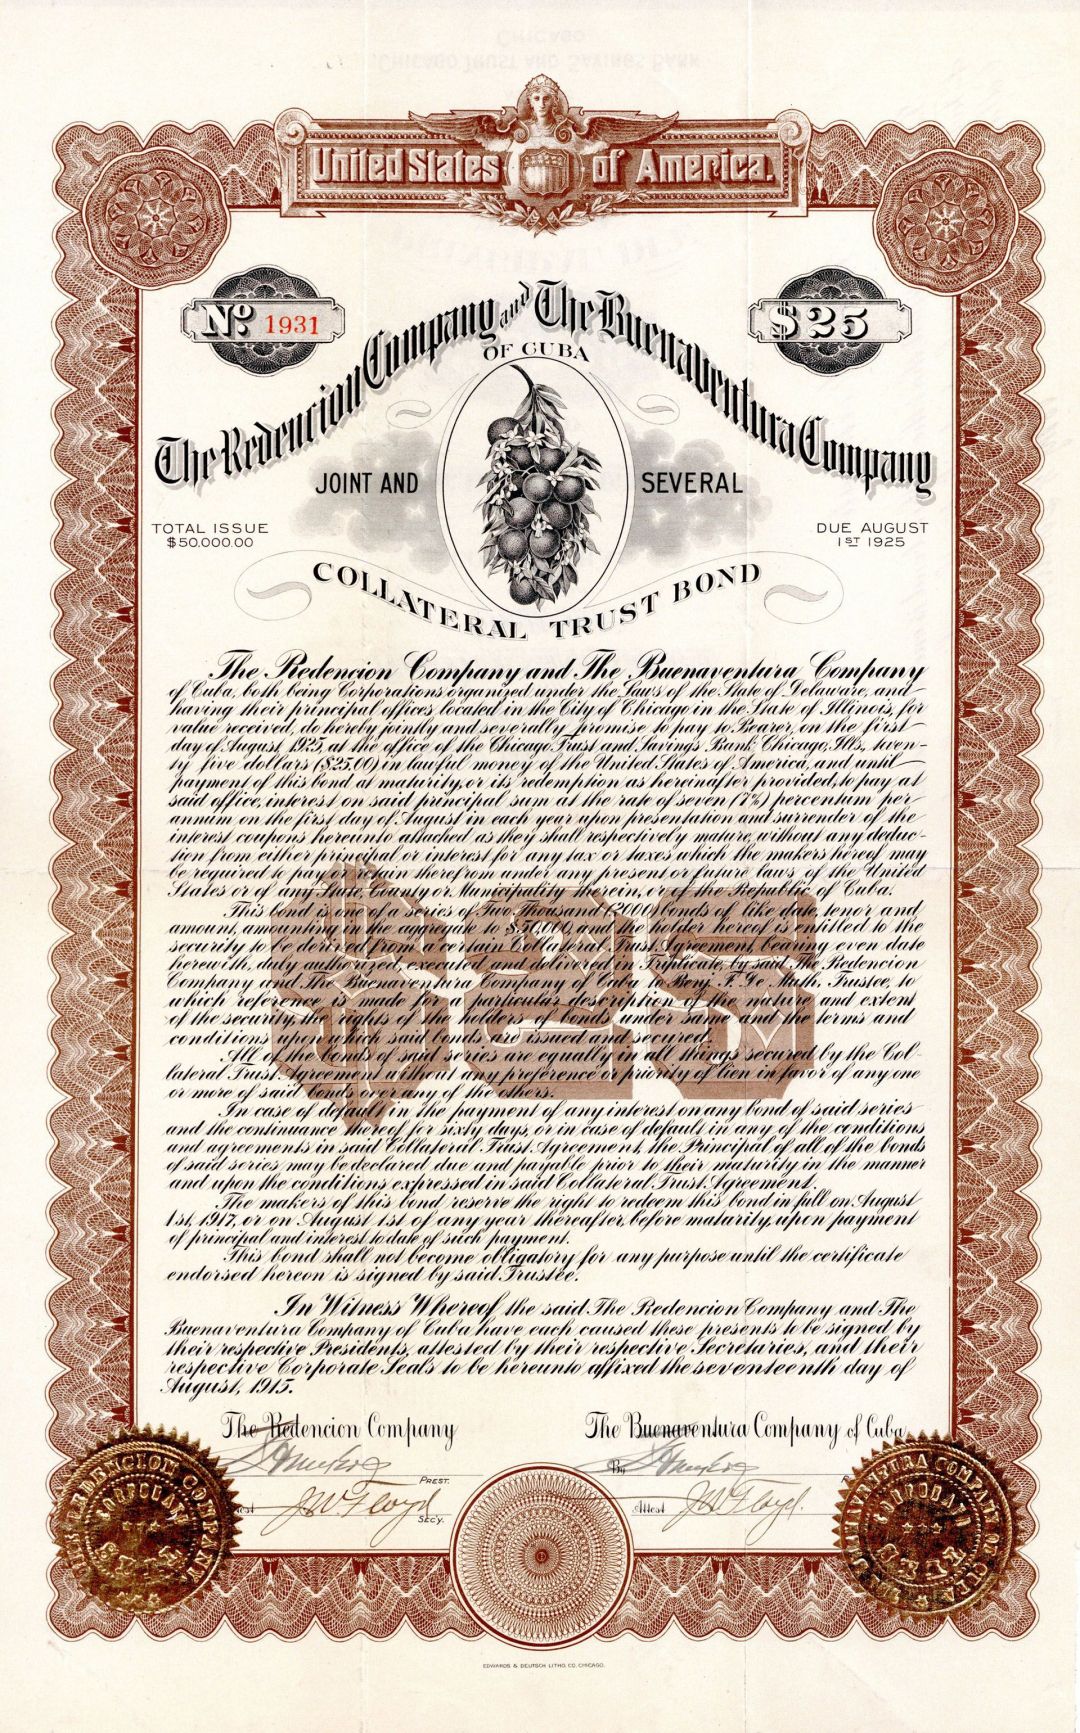 United States of America.
No. 1931
$25
The Redencion Company and The Buenaventura Company
OF CUBA
JOINT AND SEVERAL
TOTAL ISSUE
$50.000.00
DUE AUGUST
1ST 1925
COLLATERAL TRUST BOND
The Redencion Company and The Buenaventura Company
of Cuba, both being Corporations organized under the Laws of the State of Delaware, and
having their principal offices located in the City of Chicago in the State of Illinois, for
value received, do hereby jointly and severally promise to pay to Bearer, on the first
day of August, 1925, at the office of the Chicago Trust and Savings Bank, Chicago, Ills., twen-
ty five dollars ($25.00) in lawful money of the United States of America, and until
payment of this bond at maturity, or its redemption as hereinafter provided, to pay at
said office, interest on said principal sum at the rate of seven (7%) percentum per
annum on the first day of August in each year upon presentation and surrender of the
interest coupons hereunto attached as they shall respectively mature, without any deduc-
tion from either principal or interest for any tax or taxes which the makers hereof may
be required to pay or retain therefrom under any present or future laws of the United
States or of any State, County or Municipality therein, or of the Republic of Cuba.
This bond is one of a series of Two Thousand (2000) bonds of like date, tenor and
amount, amounting in the aggregate to $50,000, and the holder hereof is entitled to the
security to be derived from a certain Collateral Trust Agreement, bearing even date
herewith, duly authorized, executed and delivered in Triplicate, by said The Redencion
Company and The Buenaventura Company of Cuba to Benj. F. De Muth, Trustee, to
which reference is made for a particular description of the nature and extent
of the security, the rights of the holders of bonds under same and the terms and
conditions upon which said bonds are issued and secured.
All of the bonds of said series are equally in all things secured by the Col-
lateral Trust Agreement without any preference or priority of lien in favor of any one
or more of said bonds over any of the others.
In case of default in the payment of any interest on any bond of said series
and the continuance thereof for sixty days, or in case of default in any of the conditions
and agreements in said Collateral Trust Agreement, the Principal of all of the bonds
of said series may be declared due and payable prior to their maturity in the manner
and upon the conditions expressed in said Collateral Trust Agreement.
The makers of this bond reserve the right to redeem this bond in full on August
1st, 1917, or on August 1st of any year thereafter, before maturity, upon payment
of principal and interest to date of such payment.
This bond shall not become obligatory for any purpose until the certificate
endorsed hereon is signed by said Trustee.
In Witness Whereof the said The Redencion Company and The
Buenaventura Company of Cuba have each caused these presents to be signed by
their respective Presidents, attested by their respective Secretaries, and their
respective Corporate Seals to be hereunto affixed the seventeenth day of
August, 1915.
The Redencion Company
The Buenaventura Company of Cuba
PREST.
By
J.W. Floyd
SEC'Y.
Attest J.W. Floyd.
EDWARDS & DEUTSCH LITHO. CO. CHICAGO.